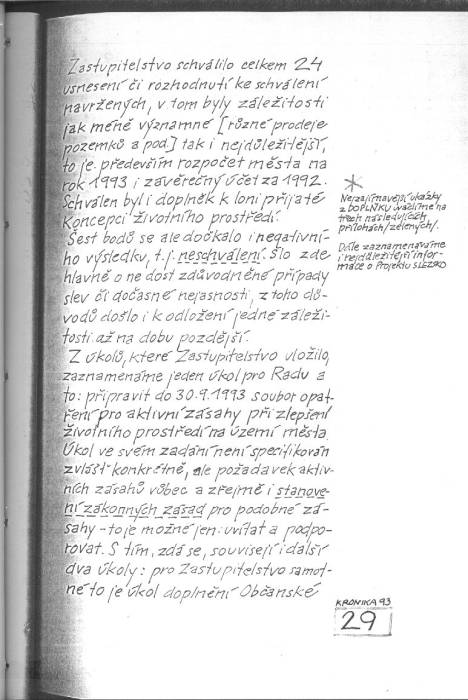 Zastupitelstvo schválilo celkem 24
usnesení či rozhodnutí ke schválení
navržených, v tom byly záležitosti
jak méně významné [různé prodeje
pozemků a pod.] tak i nejdůležitější,
to je především rozpočet města na
rok 1993 i závěrečný účet za 1992.
Schválen byl i doplněk k loni přijaté
Koncepci životního prostředí.
Šest bodů se ale dočkalo i negativní-
ho výsledku, t.j. neschválení. Šlo zde
hlavně o ne dost zdůvodněné případy
slev či dočasné nejasnosti, z toho dů-
vodů došlo i k odložení jedné záleži-
tosti až na dobu pozdější.
Z úkolů, které Zastupitelstvo uložilo,
zaznamenáme jeden úkol pro Radu a
to: připravit do 30.9.1993 soubor opat-
ření pro aktivní zásahy při zlepšení
životního prostředí na území města.
Úkol ve svém zadání není specifikován
zvlášť konkrétně, ale požadavek aktiv-
ních zásahů vůbec a zřejmě i stanove-
ní zákonných zásad pro podobné zá-
sahy - to je možné jen: uvítat a podpo-
rovat. S tím, zdá se, souvisejí i další
dva úkoly: pro Zastupitelstvo samot-
né to je úkol doplnění Občanské
*
Nejzajímavější ukázky
z DOPLŇKU uvádíme na
třech následujících
přílohách/zelených/.
Dále zaznamenáváme
i nejdůležitější infor-
mace o Projektu SLEZSKO
KRONIKA 93
29